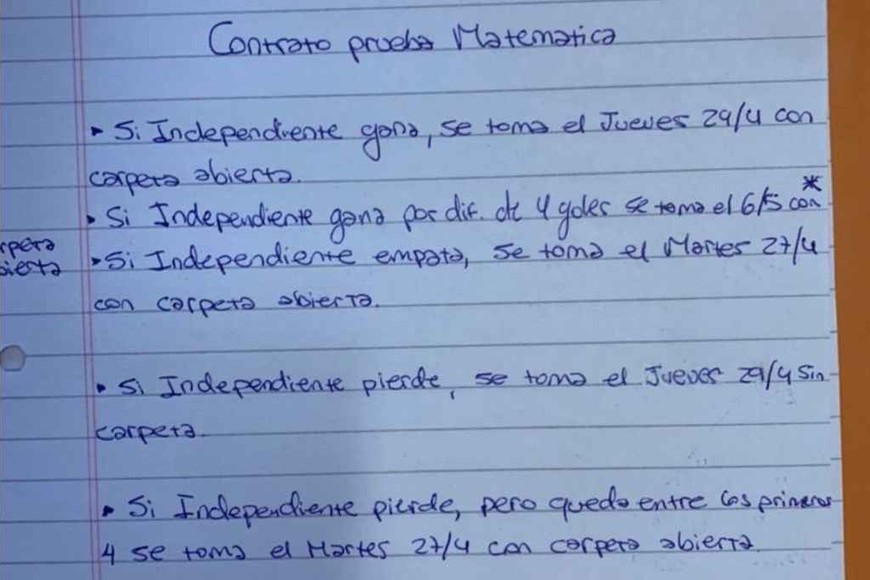 Contrato prueba Matematica
• Si Independiente gana, se toma el Jueves 29/4 con
carpeta abierta.
• Si Independiente gana por dif. de 4 goles se toma el 6/5 con*
• Si Independiente empata, se toma el Martes 27/4
con carpeta abierta.
• Si Independiente pierde, se toma el Jueves 29/4 sin
carpeta.
• Si Independiente pierde, pero queda entre los primeros
4 se toma el Martes 27/4 con carpeta abierta.
rpeta
bierta